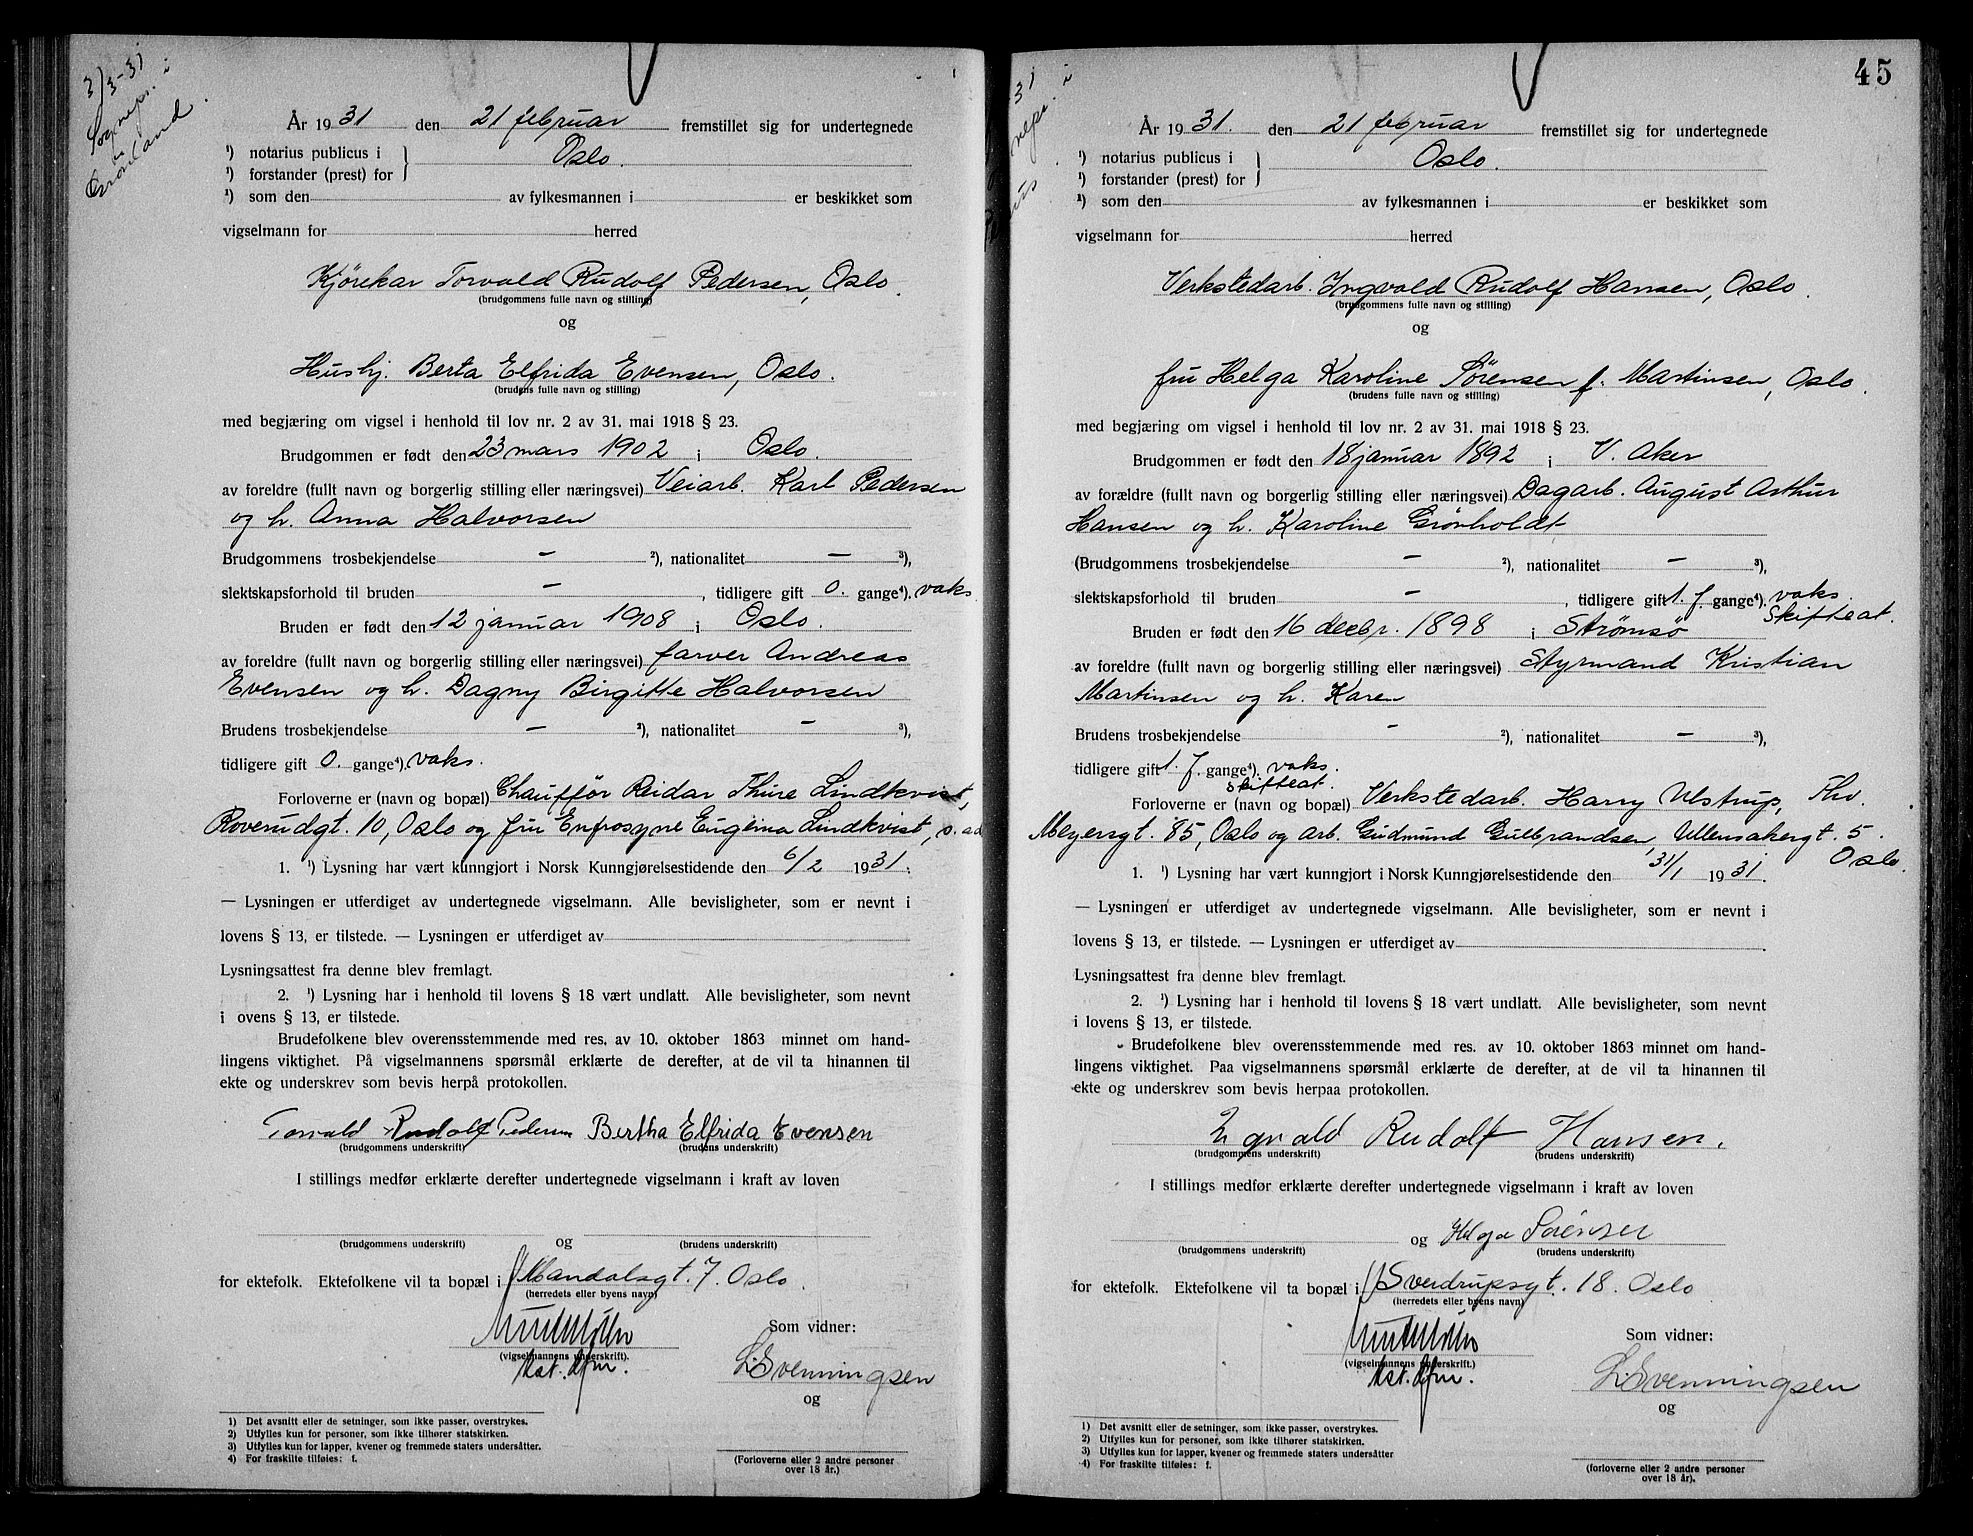 3/3-31
i
Sognepr.
i
Grønland
År 1931 den 21 februar fremstillet sig for undertegnede
¹) notarius publicus i } Oslo.
¹) forstander (prest) for
¹) som den av fylkesmannen i er beskikket som
vigselmann for herred
Kjørekar Torvald Rudolf Pedersen, Oslo.
(brudgommens fulle navn og stilling)
og
Hushj. Berta Elfrida Evensen, Oslo.
(brudens fulle navn og stilling)
med begjæring om vigsel i henhold til lov nr. 2 av 31. mai 1918 § 23.
Brudgommen er født den 23 mars 1902 i Oslo.
av foreldre (fullt navn og borgerlig stilling eller næringsvei) Veiarb. Karl Pedersen
og h. Anna Halvorsen
Brudgommens trosbekjendelse - ²), nationalitet - ³),
slektskapsforhold til bruden - , tidligere gift 0. gange⁴). vaks.
Bruden er født den 12 januar 1908 i Oslo.
av foreldre (fullt navn og borgerlig stilling eller næringsvei) farver Andreas
Evensen og h. Dagny Birgitte Halvorsen
Brudens trosbekjendelse - ²), nationalitet - ³),
tidligere gift 0. gange⁴). vaks.
Forloverne er (navn og bopæl) Chauffør Reidar Thure Lindkvist,
Roverudgt. 10, Oslo og fru Enfrosyne Eugenia Lindkvist, s. ad
1. ¹) Lysning har vært kunngjort i Norsk Kunngjørelsestidende den 6/2 1931.
— Lysningen er utferdiget av undertegnede vigselmann. Alle bevisligheter, som er nevnt i
lovens § 13, er tilstede. — Lysningen er utferdiget av
Lysningsattest fra denne blev fremlagt.
2. ¹) Lysning har i henhold til lovens § 18 vært undlatt. Alle bevisligheter, som nevnt
i ovens § 13, er tilstede.
Brudefolkene blev overensstemmende med res. av 10. oktober 1863 minnet om hand-
lingens viktighet. På vigselmannens spørsmål erklærte de derefter, at de vil ta hinannen til
ekte og underskrev som bevis herpå protokollen.
Torvald Rudolf Pedersen Bertha Elfrida Evensen
(brudgommens underskrift) (brudens underskrift)
I stillings medfør erklærte derefter undertegnede vigselmann i kraft av loven
og
(brudgommens underskrift) (brudens underskrift)
for ektefolk. Ektefolkene vil ta bopæl i Mandalsgt. 7. Oslo.
(herredets eller byens navn)
Som vidner:
(vigselmannens underskrift).
L. Svenningsen
og
1) Det avsnitt eller de setninger, som ikke passer, overstrykes.
2) Utfylles kun for personer, som ikke tilhører statskirken.
3) Utfylles kun for lapper, kvener og fremmede staters undersåtter.
4) For fraskilte tilføies: f.
(Forloverne eller 2 andre personer
over 18 år.)
45
År 1931. den 21 februar fremstillet sig for undertegnede
¹) notarius publicus i } Oslo.
¹) forstander (prest) for
¹) som den av fylkesmannen i er beskikket som
vigselmann for herred
Verkstedarb. Ingvald Rudolf Hansen, Oslo.
(brudgommens fulle navn og stilling)
og
fru Helga Karoline Sørensen f. Martinsen, Oslo.
(brudens fulle navn og stilling)
med begjæring om vigsel i henhold til lov nr. 2 av 31. mai 1918 § 23.
Brudgommen er født den 18 januar 1892 i V. Aker
av forældre (fullt navn og borgerlig stilling eller næringsvei) Dagarb. August Arthur
Hansen og h. Karoline Grønholdt
(Brudgommens trosbekjendelse - ²), nationalitet - ³),
slektskapsforhold til bruden - , tidligere gift 1. f. gange⁴). vaks.
Skifteat.
Bruden er født den 16 decbr. 1898 i Strømsø
av foreldre (fullt navn og borgerlig stilling eller næringsvei) Styrmand Kristian
Martinsen og h. Karen
Brudens trosbekjendelse - ²), nationalitet - ³),
tidligere gift 1. f. gange⁴). vaks.
Skifteat.
Forloverne er (navn og bopæl) Verkstedarb. Harry Ulstrup, Thv.
Meyersgt. 85, Oslo og arb. Gudmund Gulbrandsen, Ullensakergt. 5.
Oslo.
1. ¹) Lysning har vært kunngjort i Norsk Kunngjørelsestidende den 31/1 1931.
— Lysningen er utferdiget av undertegnede vigselmann. Alle bevisligheter, som er nevnt i
lovens § 13, er tilstede. — Lysningen er utferdiget av
Lysningsattest fra denne blev fremlagt.
2. ¹) Lysning har i henhold til lovens § 18 vært undlatt. Alle bevisligheter, som nevnt
i lovens § 13, er tilstede.
Brudefolkene blev overensstemmende med res. av 10. oktober 1863 minnet om hand-
lingens viktighet. Paa vigselmannens spørsmål erklærte de derefter, at de vil ta hinannen til
ekte og underskrev som bevis herpaa protokollen.
Ingvald Rudolf Hansen.
(brudgommens underskrift) (brudens underskrift)
I stillings medfør erklærte derefter undertegnede vigselmann i kraft av loven
og Helga Sørensen
(brudgommens underskrift) (brudens underskrift)
for ektefolk. Ektefolkene vil ta bopæl i Sverdrupsgt. 18. Oslo
(herredets eller byens navn)
Som vidner:
(vigselmannens underskrift.)
L. Svenningsen
og
1) Det avsnitt eller de setninger, som ikke passer, overstrykes.
2) Utfylles kun for personer, som ikke tilhører statskirken.
3) Utfylles kun for lapper, kvener og fremmede staters undersåtter
4) For fraskilte tilføies: f.
(forloverne eller 2 andre personer
over 18 år).